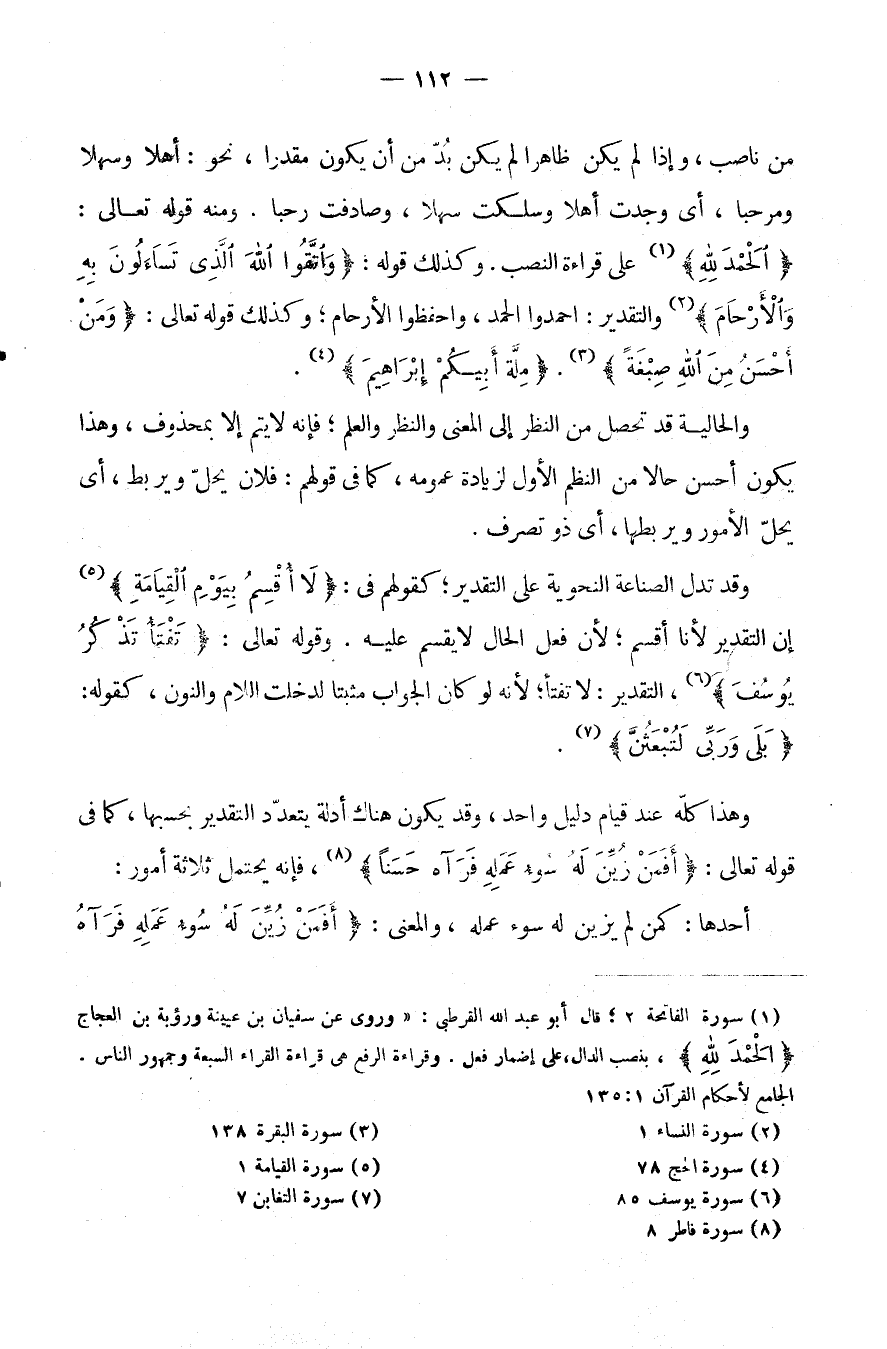 — ١١٢ —
من ناصب ، وإذا لم يكن ظاهرا لم يكن بُدّ من أن يكون مقدرا ، نحو : أهلا وسهلا
ومرحبا ، أى وجدت أهلا وسلكت سهلا ، وصادفت رحبا . ومنه قوله تعالى :
﴿ ٱلْحَمْدَ لِلهِ ﴾ (١) على قراءة النصب . وكذلك قوله : ﴿ وَٱتَّقُوا ٱللهَ ٱلَّذِى تَسَاءَلُونَ بِهِ
وَٱلْأَرْحَامَ ﴾ (٢) والتقدير : احمدوا الحمد ، واحفظوا الأرحام ؛ وكذلك قوله تعالى : ﴿ وَمَنْ
أَحْسَنُ مِنَ ٱللهِ صِبْغَةً ﴾ (٣) . ﴿ مِلَّةَ أَبِيكُمْ إِبْرَاهِيمَ ﴾ (٤) .
والحالية قد تحصل من النظر إلى المعنى والنظر والعلم ؛ فإنه لايتم إلا بمحذوف ، وهذا
يكون أحسن حالا من النظم الأول لزيادة عمومه ، كما فى قولهم : فلان يحلّ ويربط ، أى
يحلّ الأمور ويربطها ، أى ذو تصرف .
وقد تدل الصناعة النحوية على التقدير ؛ كقولهم فى : ﴿ لَا أُقْسِمُ بِيَوْمِ ٱلْقِيَامَةِ ﴾ (٥)
إن التقدير لأنا أقسم ؛ لأن فعل الحال لايقسم عليه . وقوله تعالى : ﴿ تَفْتَأُ تَذْكُرُ
يُوسُفَ ﴾ (٦) ، التقدير : لا تفتأ ؛ لأنه لو كان الجواب مثبتا لدخلت اللام والنون ، كقوله:
﴿ بَلَى وَرَبِّى لَتُبْعَثُنَّ ﴾ (٧) .
وهذا كلّه عند قيام دليل واحد ، وقد يكون هناك أدلة يتعدّد التقدير بحسبها ، كما فى
قوله تعالى : ﴿ أَفَمَنْ زُيِّنَ لَهُ سُوءُ عَمَلِهِ فَرَآهُ حَسَناً ﴾ (٨) ، فإنه يحتمل ثلاثة أمور :
أحدها : كمن لم يزين له سوء عمله ، والمعنى : ﴿ أَفَمَنْ زُيِّنَ لَهُ سُوءُ عَمَلِهِ فَرَآهُ
(١) سورة الفاتحة ٢ ؛ قال أبو عبد الله القرطبي : « وروى عن سفيان بن عيينة ورؤبة بن العجاج
﴿ الْحَمْدَ لِلهِ ﴾ ، بنصب الدال،على إضمار فعل . وقراءة الرفع هى قراءة القراء السبعة وجمهور الناس .
الجامع لأحكام القرآن ١ : ١٣٥
(٢) سورة النساء ١
(٣) سورة البقرة ١٣٨
(٤) سورة الحج ٧٨
(٥) سورة القيامة ١
(٦) سورة يوسف ٨٥
(٧) سورة التغابن ٧
(٨) سورة فاطر ٨